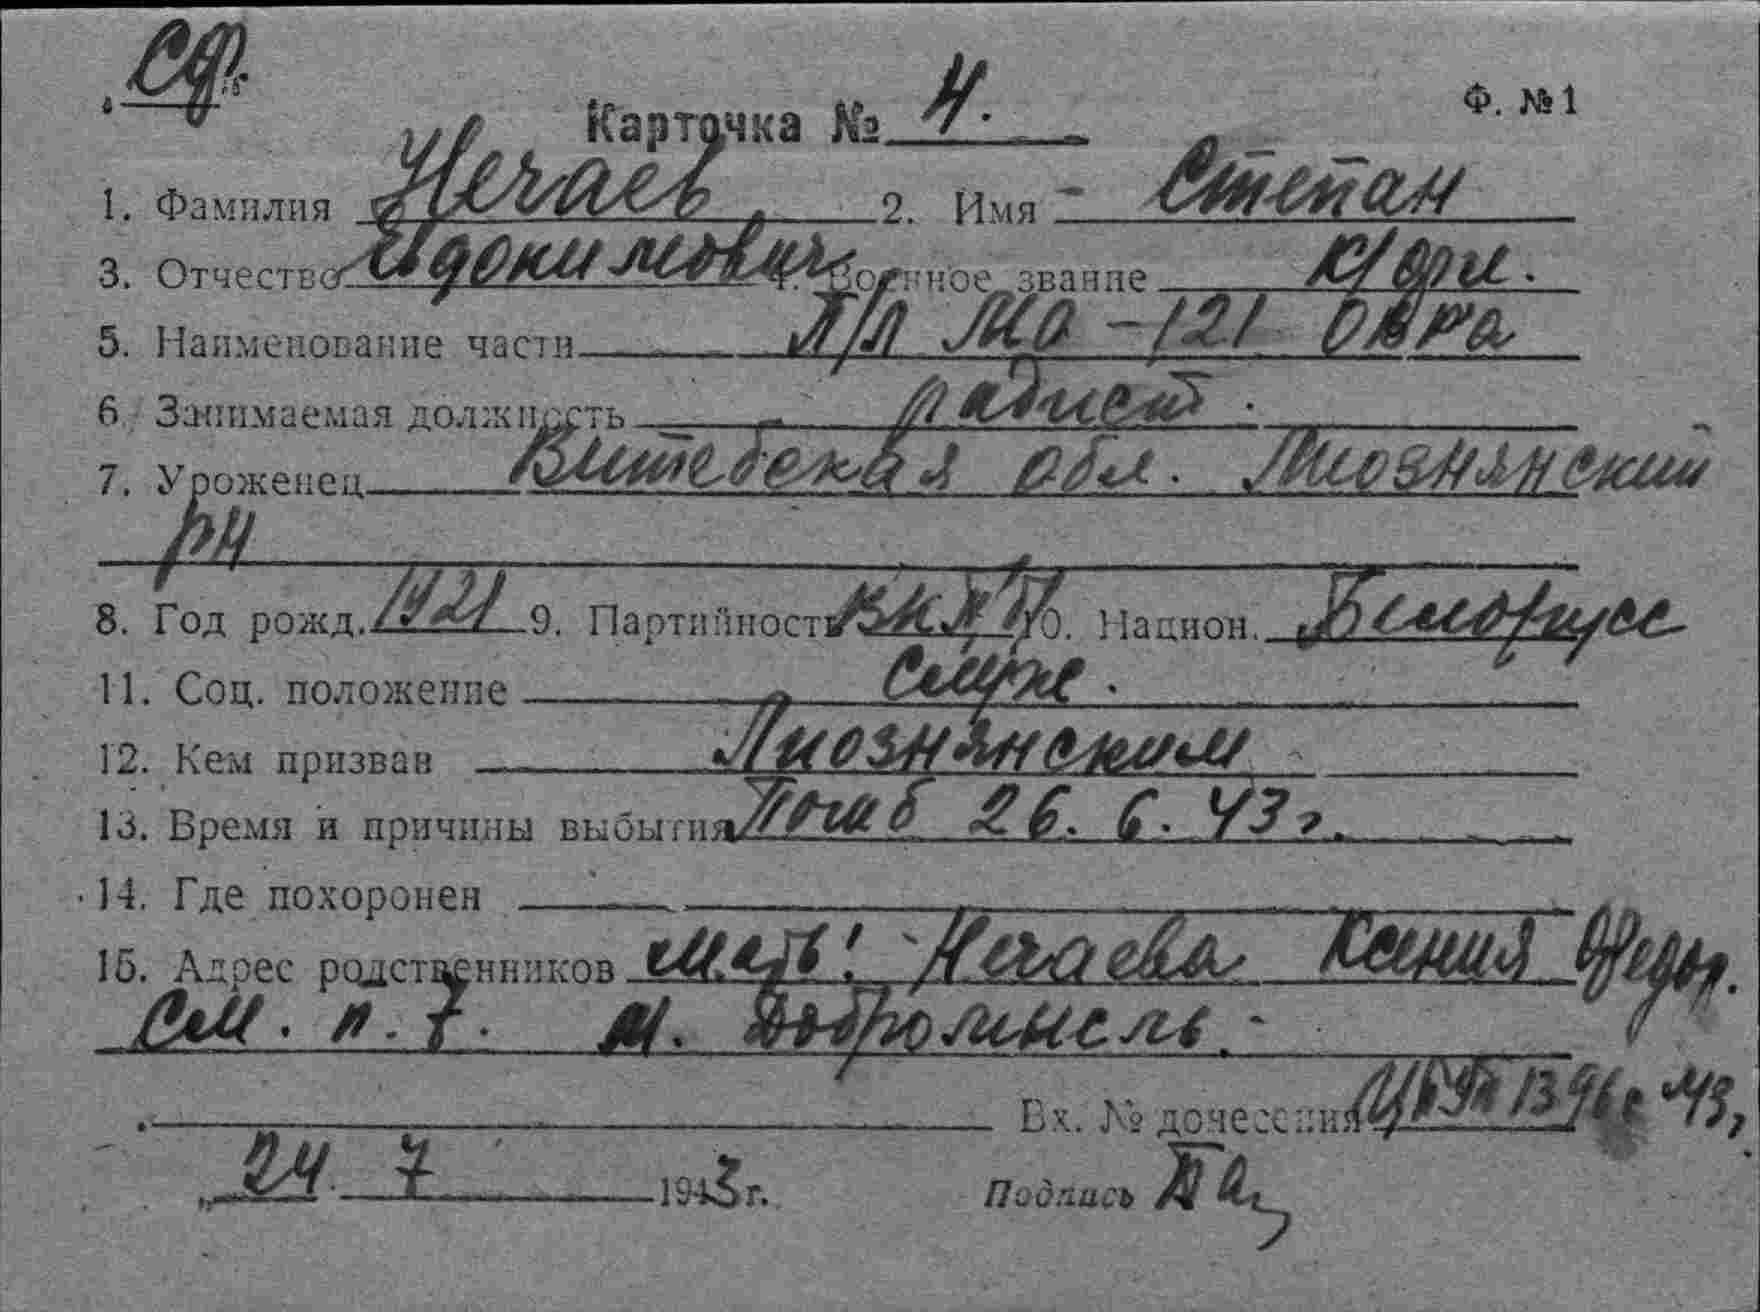 СФ.
Карточка № 4. Ф. №1
1. Фамилия Нечаев 2. Имя Степан
3. Отчество Евдокимович 4. Военное звание к/фл.
5. Наименование части п/л МО-121 ОВРа
6. Занимаемая должность радист.
7. Уроженец Витебская обл. Лиознянский
рн
8. Год рожд. 1921 9. Партийность ВКПб 10. Национ. Белорусс
11. Соц. положение служ.
12. Кем призван Лиознянским
13. Время и причины выбытия Погиб 26.6.43г.
14. Где похоронен
15. Адрес родственников мать: Нечаева Ксения Федор.
см. п. 7. м. Добромысль.
Вх. № донесения 1396с 43г
24. 7 1943г. Подпись